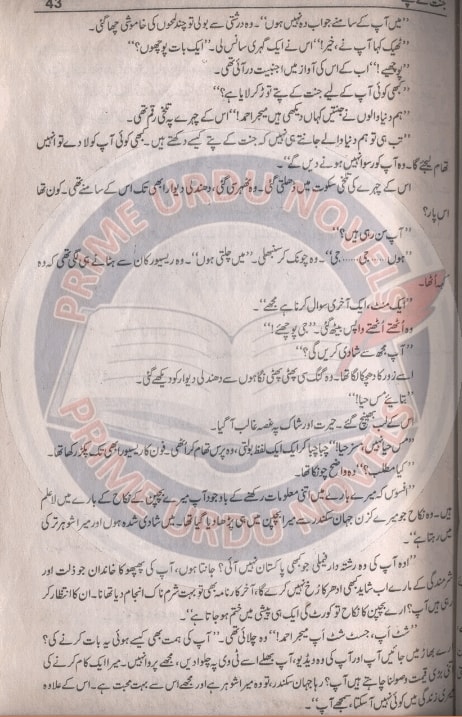 43
جنت کے پتے
”میں آپ کے سامنے جواب دہ نہیں ہوں“۔ وہ درشتی سے بولی تو چند لمحوں کی خاموشی چھا گئی۔
”ٹھیک کہا آپ نے، خیر!“ اس نے ایک گہری سانس لی۔ ”ایک بات پوچھوں؟“
”پوچھیے!“ اب کے اس کی آواز میں اجنبیت در آئی تھی۔
”کبھی کوئی آپ کے لیے جنت کے پتے توڑ کر لایا ہے؟“
”ہم دنیا والوں نے جنتیں کہاں دیکھی ہیں میجر احمد!“ اس کے چہرے پہ تلخی رقم تھی۔
”تب ہی تو ہم دنیا والے جانتے ہی نہیں کہ جنت کے پتے کیسے دکھتے ہیں۔ کبھی کوئی آپ کو لا دے تو انہیں
تھام لیجئے گا۔ وہ آپ کو رسوا نہیں ہونے دیں گے“۔
اس کے چہرے کی تلخی سکوت میں ڈھلتی گئی۔ وہ ٹھہر سی گئی، دھندلی دیوار ابھی تک اس کے سامنے تھی۔ کون تھا
اس پار؟
”آپ سن رہی ہیں؟“
”ہوں ...... جی ...... جی“۔ وہ چونک کر سنبھلی۔ ”میں چلتی ہوں“۔ وہ ریسیور کان سے ہٹانے ہی لگی تھی کہ وہ
کہہ اُٹھا۔
”ایک منٹ، ایک آخری سوال کرنا ہے مجھے“۔
وہ اُٹھتے اُٹھتے واپس بیٹھ گئی۔ ”جی پوچھئے!“
”آپ مجھ سے شادی کریں گی؟“
اسے زور کا دھچکا لگا تھا۔ وہ گنگ سی پھٹی پھٹی نگاہوں سے دھندلی دیوار کو دیکھے گئی۔
”بتائے مس حیا!“
اس کے لب بھینچ گئے۔ حیرت اور شاک پہ غصہ غالب آ گیا۔
”مس حیا نہیں، مسز حیا!“ چبا چبا کر ایک ایک لفظ بولتی، وہ پرس تھام کر اُٹھی۔ فون کا ریسیور ابھی تک پکڑ رکھا تھا۔
”کیا مطلب؟“ وہ واضح چونکا تھا۔
”افسوس کہ میرے بارے میں اتنی معلومات رکھنے کے باوجود آپ میرے بچپن کے نکاح کے بارے میں لاعلم
ہیں۔ وہ نکاح جو میرے کزن جہان سکندر سے میرا بچپن میں ہی پڑھا دیا گیا تھا۔ میں شادی شدہ ہوں اور میرا شوہر ترکی
میں رہتا ہے“۔
”اوہ آپ کی وہ رشتہ دار فیملی جو کبھی پاکستان نہیں آئی؟ جانتا ہوں، آپ کی پھپھو کا خاندان جو ذلت اور
شرمندگی کے مارے اب شاید کبھی ادھر کا رُخ نہیں کرے گا، آخر کارنامہ بھی تو بہت شرم ناک انجام دیا تھا نا۔ ان کا انتظار کر
رہی ہیں آپ؟ ارے بچپن کا نکاح تو کورٹ کی ایک ہی پیشی میں ختم ہو جاتا ہے“۔
”شٹ اَپ، جسٹ شٹ اَپ میجر احمد!“ وہ چلائی تھی۔ ”آپ کی ہمت بھی کیسے ہوئی یہ بات کرنے کی؟
ارے بھاڑ میں جائیں آپ اور آپ کی وہ ویڈیو، آپ بھلے اسے ٹی وی پہ چلوا دیں، مجھے پروا نہیں۔ میرا ایک کام کرنے کی
اتنی بڑی قیمت وصولنا چاہتے ہیں آپ؟ رہا جہان سکندر، تو وہ میرا شوہر ہے اور مجھے اس سے بہت محبت ہے۔ اس کے علاوہ
میری زندگی میں کوئی نہیں آ سکتا، سمجھے آپ“۔
PRIME URDU NOVELS
PRIME URDU NOVELS